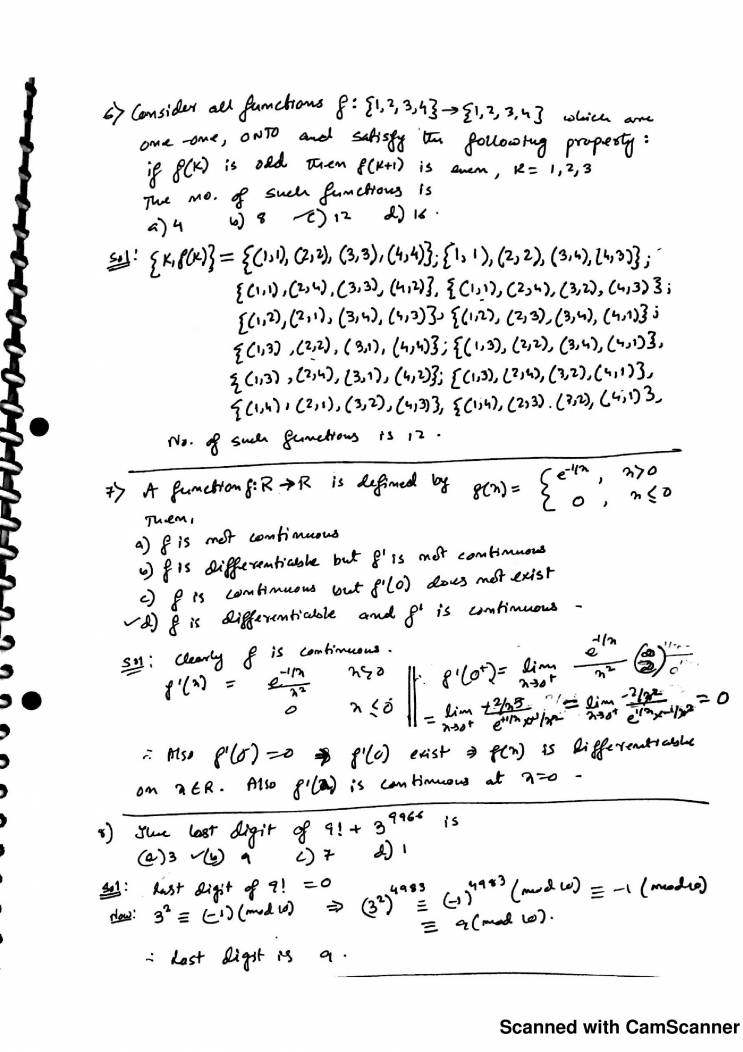 6) Consider all functions f: {1,2,3,4} → {1,2,3,4} which are
one-one, ONTO and satisfy the following property:
if f(K) is odd then f(K+1) is even, K = 1,2,3
The no. of such functions is
a) 4 b) 8 ✓c) 12 d) 16.
Sol: {K,f(K)} = {(1,1), (2,2), (3,3), (4,4)}; {1,1), (2,2), (3,4), (4,3)};
{(1,1), (2,4), (3,3), (4,2)}, {(1,1), (2,4), (3,2), (4,3)};
{(1,2), (2,1), (3,4), (4,3)}, {(1,2), (2,3), (3,4), (4,1)};
{(1,3), (2,2), (3,1), (4,4)}; {(1,3), (2,2), (3,4), (4,1)},
{(1,3), (2,4), (3,1), (4,2)}; {(1,3), (2,4), (3,2), (4,1)},
{(1,4), (2,1), (3,2), (4,3)}, {(1,4), (2,3). (3,2), (4,1)},
No. of such functions is 12.
7) A function f: R → R is defined by f(x) = { e^{-1/x}, x>0
0, x ≤ 0
Then,
a) f is not continuous
b) f is differentiable but f' is not continuous
c) f is continuous but f'(0) does not exist
✓d) f is differentiable and f' is continuous -
Sol: Clearly f is continuous.
f'(x) = e^{-1/x}/x² x>0
0 x ≤ 0
f'(0⁺) = lim x→0⁺ e^{-1/x}/x²
= lim x→0⁺ = lim x→0⁺ = 0
∴ Also f'(0⁻) = 0 ⇒ f'(0) exist ⇒ f(x) is differentiable
on x∈R. Also f'(x) is continuous at x=0 -
8) The last digit of 9! + 3^{9966} is
(a) 3 ✓(b) 9 c) 7 d) 1
Sol: Last digit of 9! = 0
Now: 3² ≡ (-1)(mod 10) ⇒ (3²)^{4983} ≡ (-1)^{4983} (mod 10) ≡ -1 (mod 10)
≡ 9 (mod 10).
∴ Last digit is 9.
Scanned with CamScanner